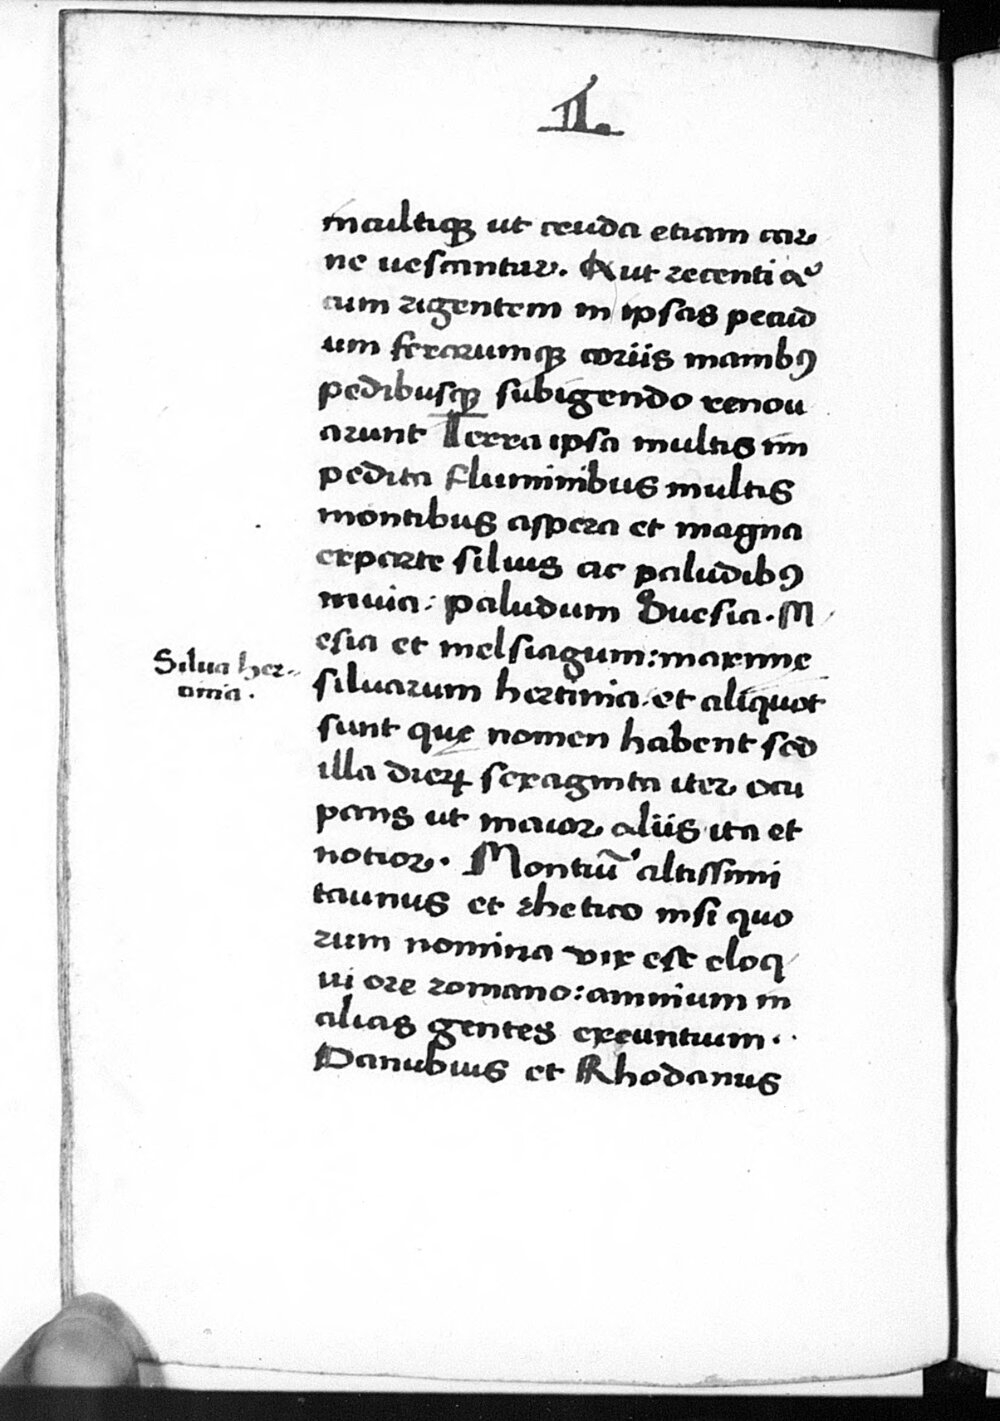 I.
incultiqꝫ ut cruda etiam car
ne uescantur. Aut recenti aᵗ
cum rigentem in ipsas pecud
um ferarumqꝫ coriis manibꝰ
pedibusqꝫ subigendo renou
arunt Terra ipsa multis im
pedita fluminibus multis
montibus aspera et magna
exparte siluis ac paludibꝰ
inuia: paludum Suesia. M
esia et melsiagum: maxime
siluarum hercinia et aliquot
sunt quę nomen habent sed
illa dierꝝ sexaginta iter ocu
pans ut maior aliis ita et
notior. Montiū altissimi
taunus et rhetico nisi quo
rum nomina vix est eloq
ui ore romano: amnium in
alias gentes exeuntium.
Danubius et Rhodanus
Silua her-
cinia.